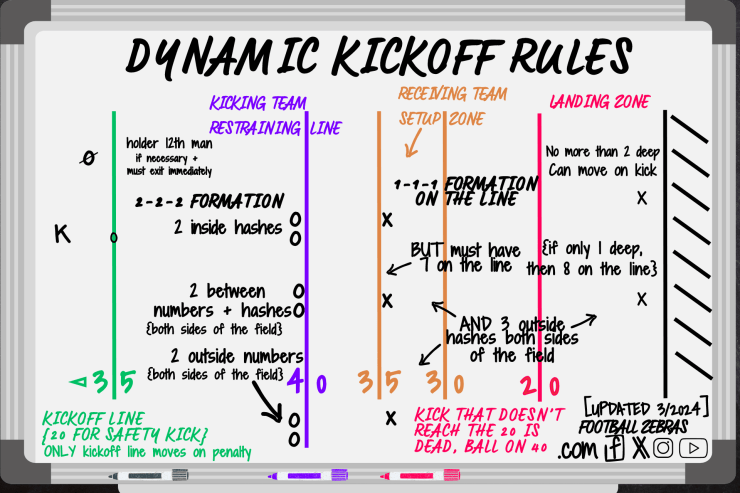 DYNAMIC KICKOFF RULES
KICKING TEAM
RESTRAINING LINE
RECEIVING TEAM
SETUP ZONE
LANDING ZONE
Ø
holder 12th man
if necessary +
must exit immediately
2-2-2 FORMATION
2 inside hashes
O
O
K
O
2 between
numbers + hashes
{both sides of the field}
O
O
2 outside numbers
{both sides of the field}
O
O
1-1-1 FORMATION
ON THE LINE
X
BUT must have
7 on the line
X
AND 3 outside
hashes both sides
of the field
X
No more than 2 deep
Can move on kick
X
{if only 1 deep,
then 8 on the line}
X
35
40
35
30
20
KICKOFF LINE
{20 FOR SAFETY KICK}
ONLY kickoff line moves on penalty
KICK THAT DOESN'T
REACH THE 20 IS
DEAD, BALL ON 40
[UPDATED 3/2024]
FOOTBALL ZEBRAS
.com f X